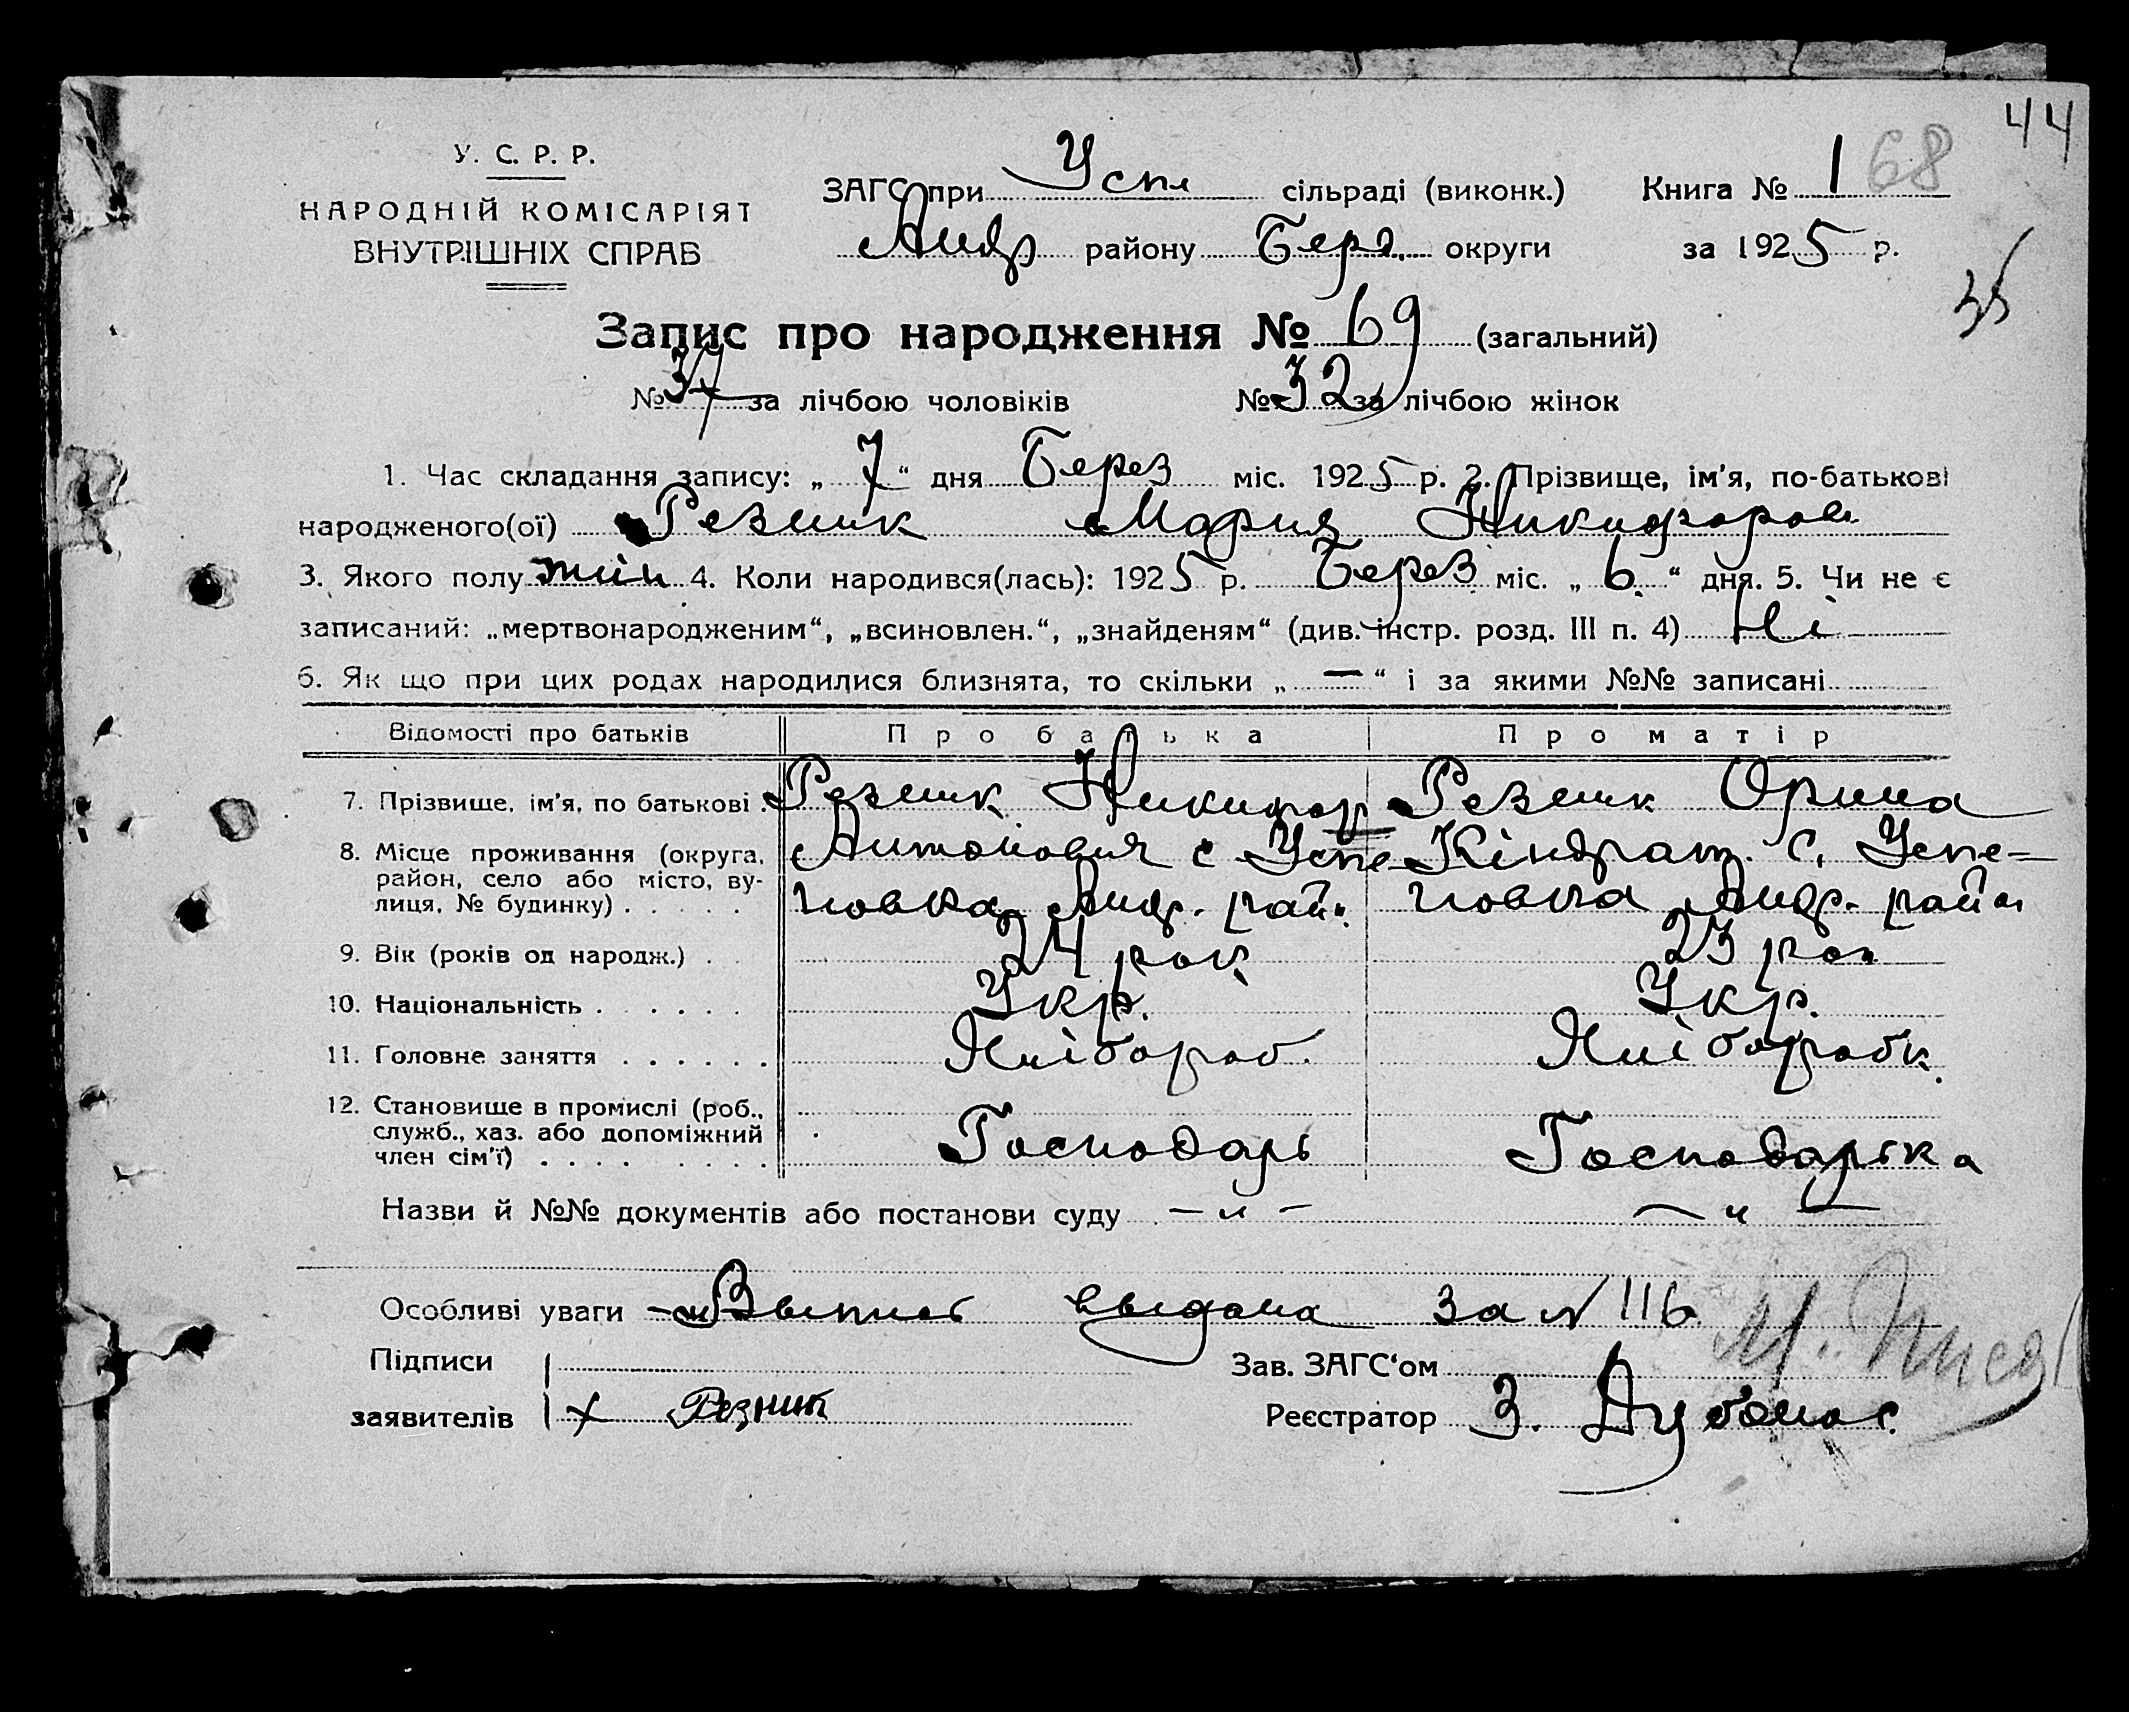 44
У. С. Р. Р.
НАРОДНІЙ КОМІСАРІЯТ
ВНУТРІШНІХ СПРАВ
ЗАГС при Усп сільраді (виконк.) Книга № 1 68
Андр району Берд. округи за 1925 р.
Запис про народження № 69 (загальний)
№ 37 за лічбою чоловіків № 32 за лічбою жінок
1. Час складання запису: „ 7 “ дня Берез міс. 1925 р. 2. Прізвище, ім'я, по-батькові
народженого(ої) Резник Мария Никифоров
3. Якого полу жін 4. Коли народився(лась): 1925 р. Берез міс. „ 6. “ дня. 5. Чи не є
записаний: „мертвонародженим“, „всиновлен.“, „знайденям“ (див. інстр. розд. III п. 4) Ні
6. Як що при цих родах народилися близнята, то скільки „ — “ і за якими №№ записані
Відомості про батьків Про батька Про матір
7. Прізвище, ім'я, по батькові . Резник Никифор Резник Орина
8. Місце проживання (округа, Антонович с Успе- Кіндрат. с. Успе-
район, село або місто, ву-
лиця, № будинку) . . . . . новка Андр. рай. новка Андр. рай
9. Вік (років од народж.) . . 24 рок 23 рок
10. Національність . . . . . . Укр. Укр.
11. Головне заняття . . . . . . Хлібороб. Хлібороб к.
12. Становище в промислі (роб.,
служб., хаз. або допоміжний Господарь Господарька
член сім'ї) . . . . . . . . .
Назви й №№ документів або постанови суду — „ — — „ —
Особливі уваги — Выпись выдана за № 116
Підписи Зав. ЗАГС‘ом
заявителів + Резник Реєстратор З.